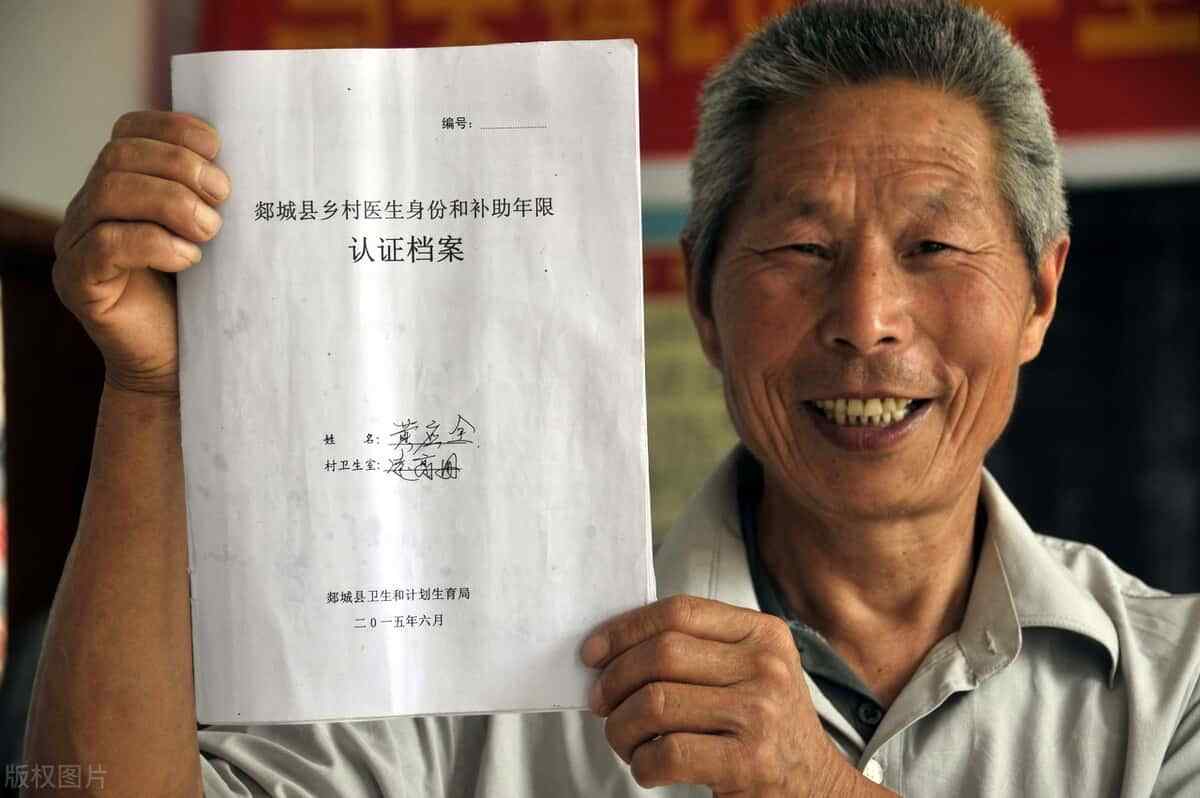 编号：
郯城县乡村医生身份和补助年限
认证档案
姓 名：黄应全
村卫生室：
郯城县卫生和计划生育局
二0一五年六月
版权图片